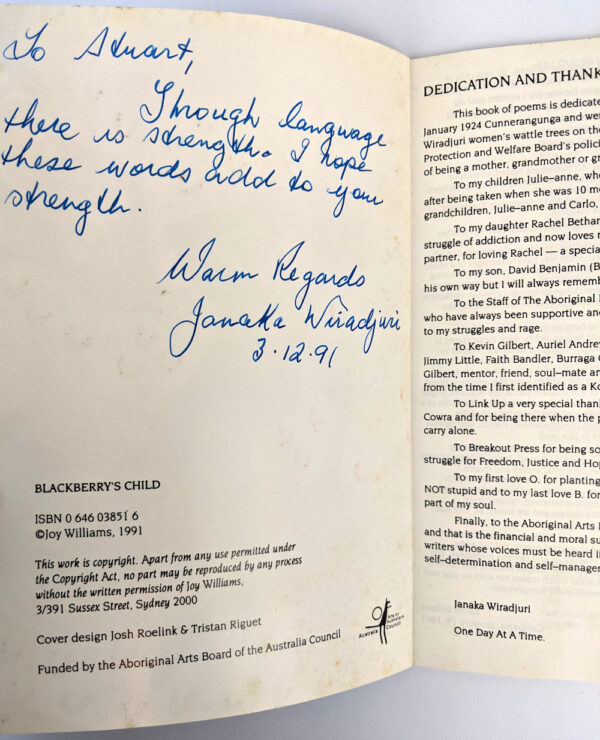 To Stuart,
Through language
there is strength. I hope
these words add to your
strength.
Warm Regards
Janaka Wiradjuri
3.12.91
BLACKBERRY'S CHILD
ISBN 0 646 03851 6
©Joy Williams, 1991
This work is copyright. Apart from any use permitted under
the Copyright Act, no part may be reproduced by any process
without the written permission of Joy Williams,
3/391 Sussex Street, Sydney 2000
Cover design Josh Roelink & Tristan Riguet
Funded by the Aboriginal Arts Board of the Australia Council
Arts for
Australians
Australia Council
DEDICATION AND THANK
This book of poems is dedicate
January 1924 Cunnerangunga and we
Wiradjuri women's wattle trees on the
Protection and Welfare Board's polici
of being a mother, grandmother or gr
To my children Julie–anne, who
after being taken when she was 10 mo
grandchildren, Julie–anne and Carlo,
To my daughter Rachel Bethan
struggle of addiction and now loves
partner, for loving Rachel — a specia
To my son, David Benjamin (B
his own way but I will always rememb
To the Staff of The Aboriginal
who have always been supportive and
to my struggles and rage.
To Kevin Gilbert, Auriel Andre
Jimmy Little, Faith Bandler, Burraga
Gilbert, mentor, friend, soul–mate an
from the time I first identified as a Ko
To Link Up a very special thank
Cowra and for being there when the p
carry alone.
To Breakout Press for being so
struggle for Freedom, Justice and Hop
To my first love O. for planting
NOT stupid and to my last love B. for
part of my soul.
Finally, to the Aboriginal Arts
and that is the financial and moral su
writers whose voices must be heard i
self–determination and self–manager
Janaka Wiradjuri
One Day At A Time.